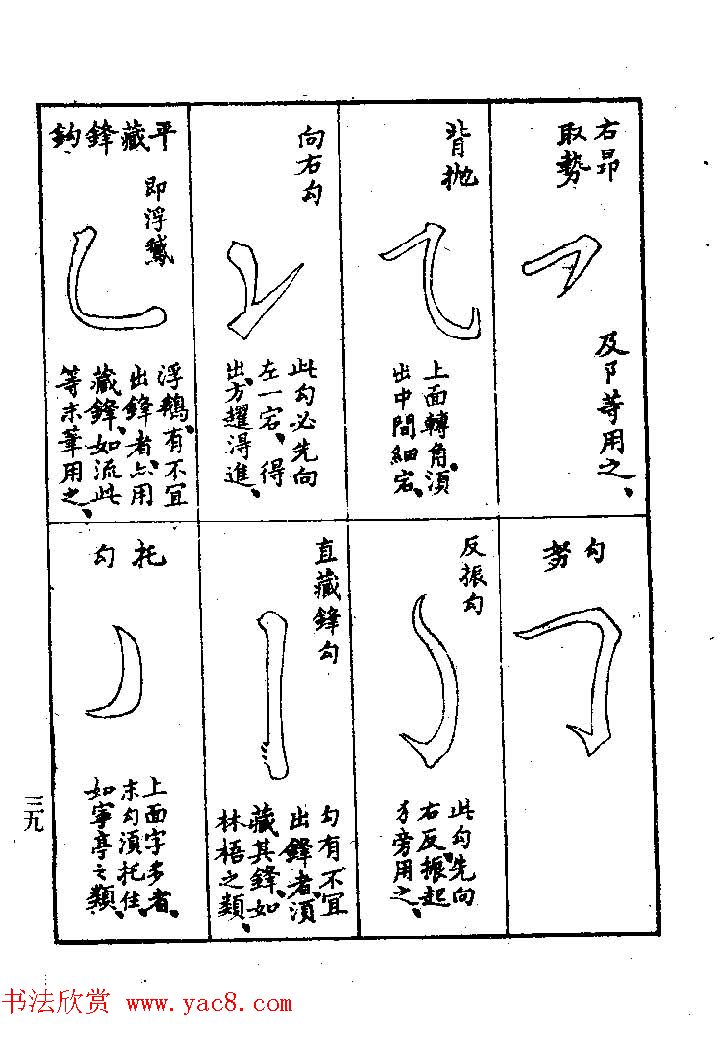 右昂
取勢
及阝等用之、
背拋
上面轉角、須
出中間細宕、
向右勾
此勾必先向
左一宕、得
出、方趯得進、
平藏鋒鈎
即浮鵞
浮鵝、有不宜
出鋒者、亦用
藏鋒、如流此
等末筆用之、
勾努
反振勾
此勾先向
右反振起
犭旁用之、
直藏鋒勾
勾有不宜
出鋒者、須
藏其鋒、如
林梧之類、
托勾
上面字多者、
末勾須托住、
如寧亭之類、
三九
书法欣赏 www.yac8.com